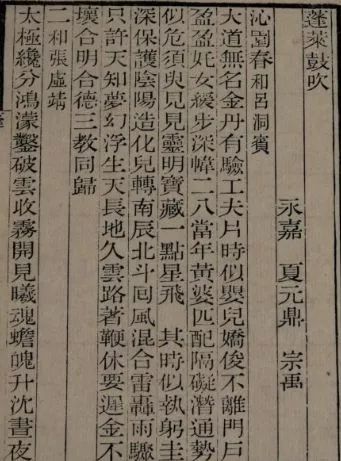 蓬萊鼓吹
永嘉 夏元鼎 宗禹
沁園春和呂洞賓
大道無名金丹有驗工夫片時似嬰兒嬌俊不離門戶
盈盈奼女緩步深幃二八當年黃婆匹配隔礙潛通勢
似危須臾見見靈明寶藏一點星飛 其時似執躬圭
深保護陰陽造化兒轉南辰北斗回風混合雷轟雨驟
只許天知夢幻浮生天長地久雲路著鞭休要遲金不
壞合明合德三教同歸
二和張虛靖
太極纔分鴻蒙鑿破雲收霧開見曦魂蟾魄升沈晝夜